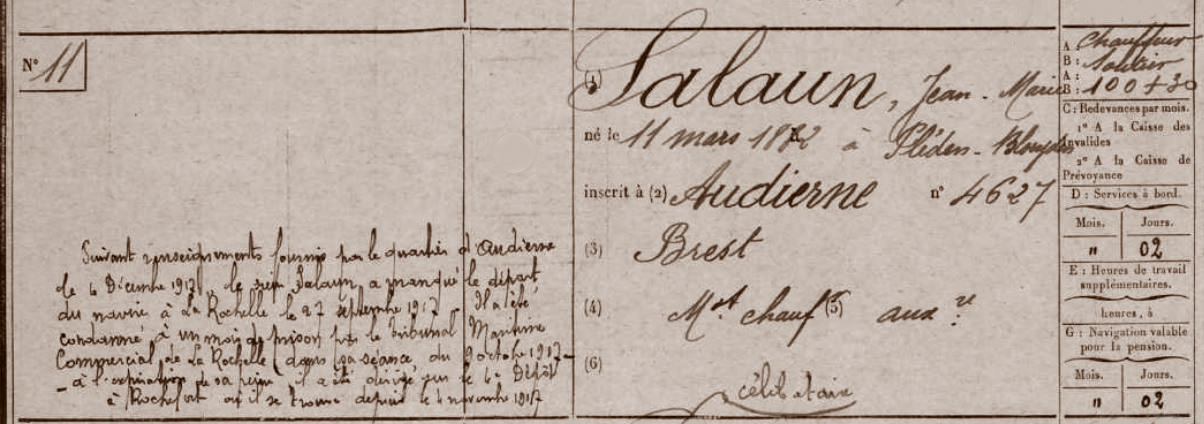 N° 11
Suivant renseignements fournis par le quartier d'Audierne
de 4 Décembre 1917, le sieur Salaun a manqué le départ
du navire à La Rochelle le 27 septembre 1917 Il a été
condamné à un mois de prison par le tribunal Maritime
Commercial de La Rochelle (dans sa séance du 9 octobre 1917 -
- à l'expiration de sa peine il a été dirigé sur le 4e Dépôt
à Rochefort où il se trouve depuis le novembre 1917
(1) Salaun, Jean-Marie
né le 11 mars 1882 à
inscrit à (2) Audierne n° 4627
(3) Brest
(4) Mt chauf (5) auxre
(6)
célibataire
A : Chauffeur
B : Soutier
A : 100 + 30
B :
C : Redevances par mois.
1° A la Caisse des
Invalides
2° A la Caisse de
Prévoyance
D : Services à bord.
Mois. Jours.
" 02
E : Heures de travail
supplémentaires.
heures, à
G : Navigation valable
pour la pension.
Mois. Jours.
" 02